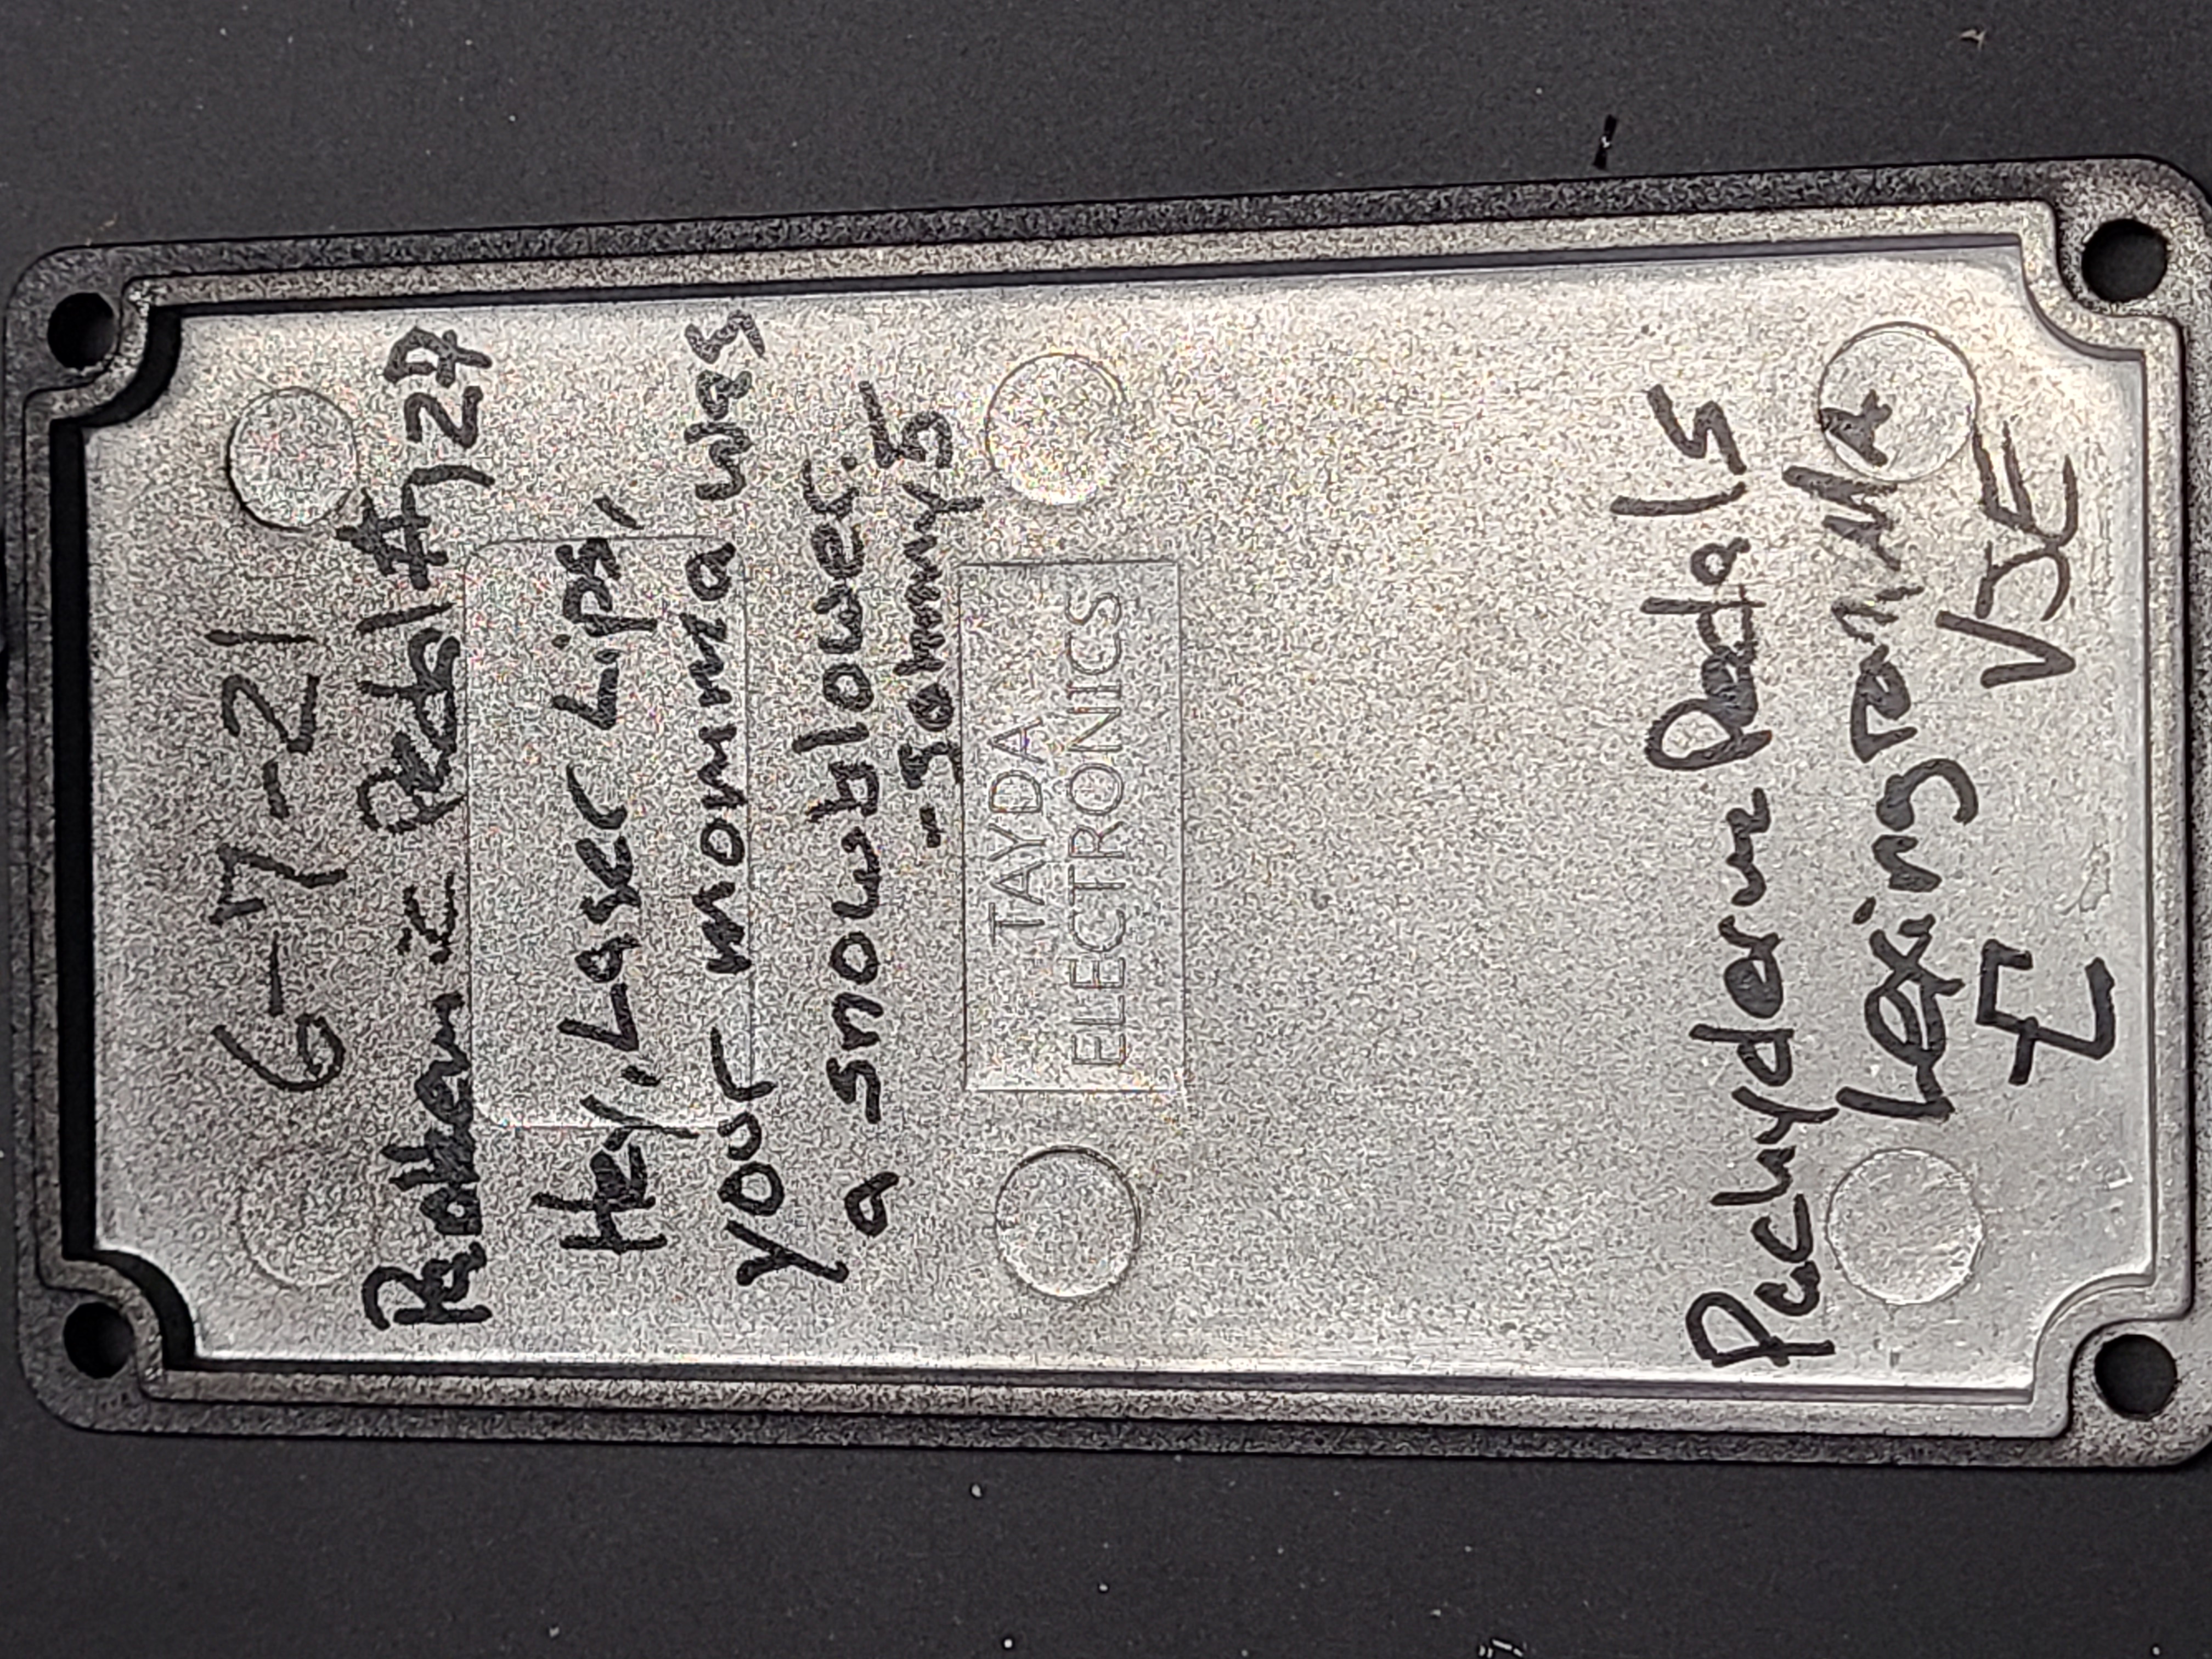 6-7-21
Pedal #127
Hey, Laser Lips,
your momma was
a snowblower.
-Johnny 5
TAYDA
ELECTRONICS
Pachyderm Pedals
Lexington, MA
VJE